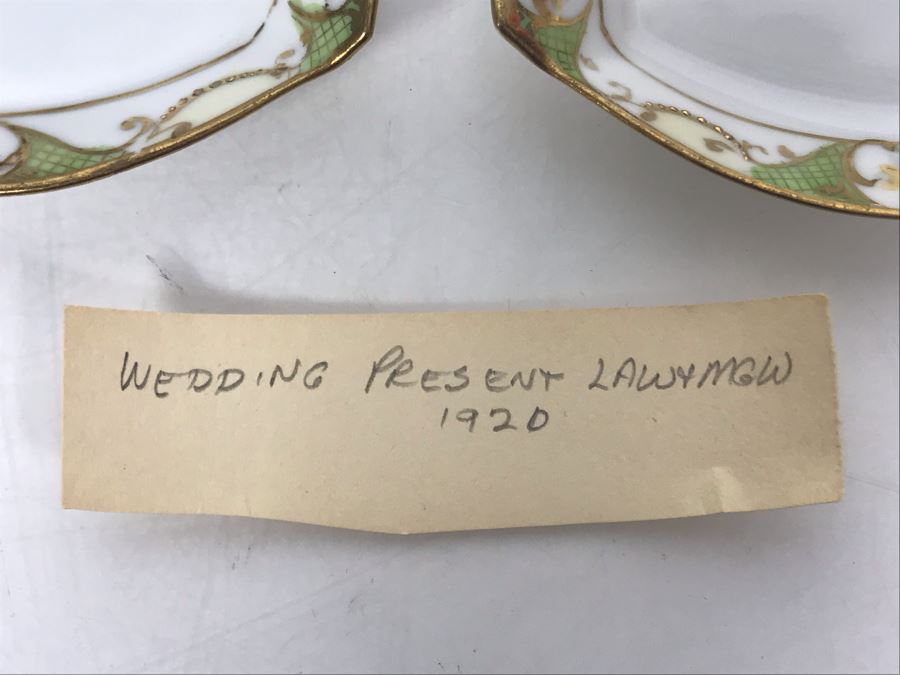 WEDDING PRESENT LAW+MGW
1920